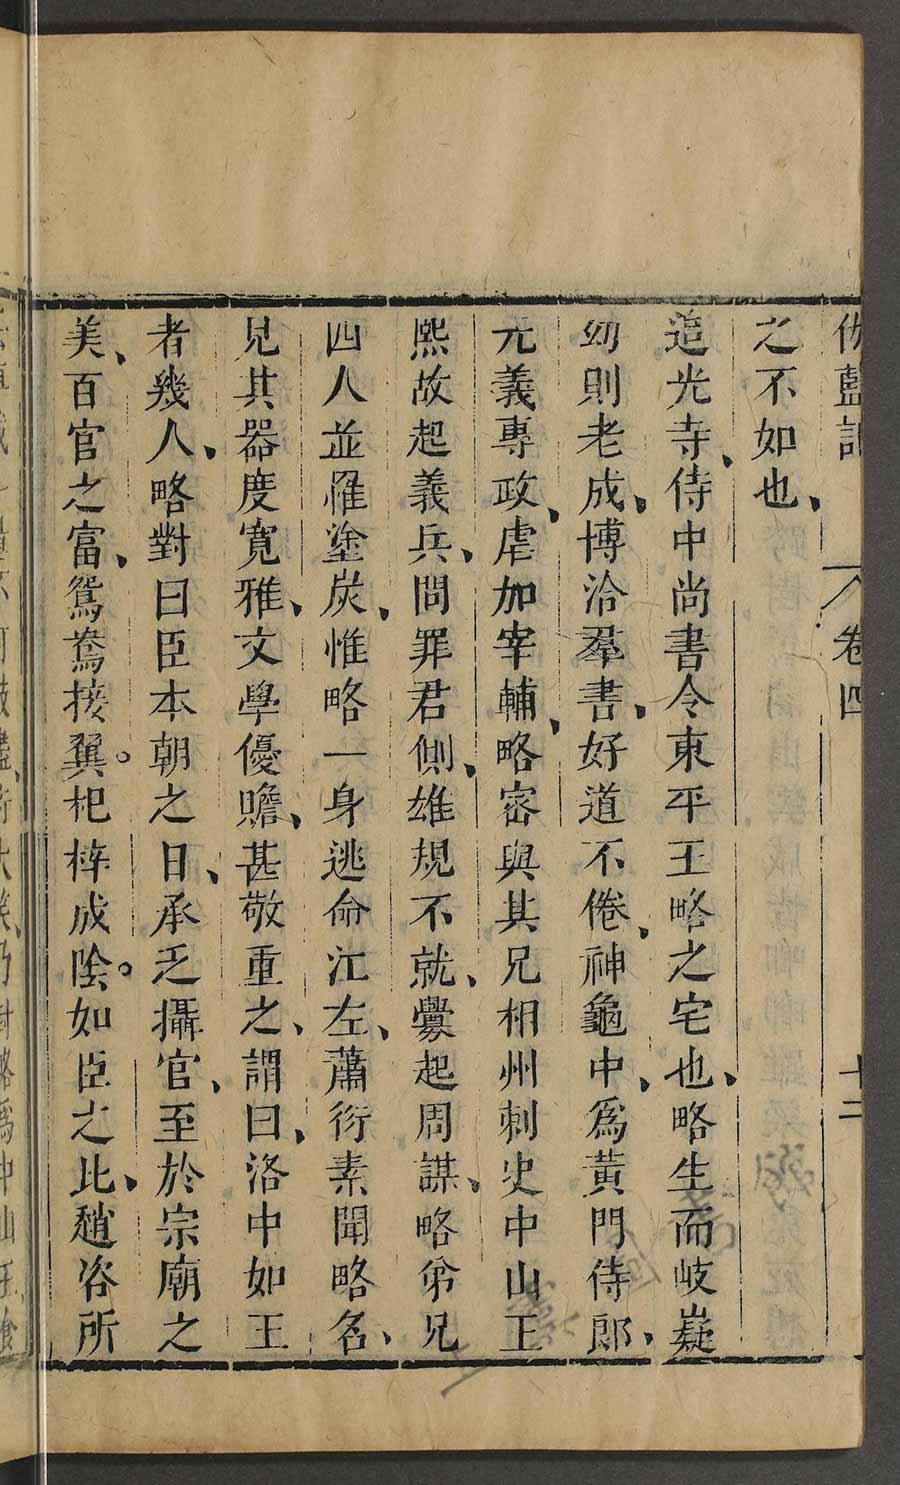 伽藍記 卷四 十二
之不如也、
追光寺、侍中尚書令東平王略之宅也、略生而岐嶷
幼則老成、博洽羣書、好道不倦、神龜中、爲黃門侍郎、
元義專政、虐加宰輔、略密與其兄相州刺史中山王
熙故起義兵、問罪君側、雄規不就、釁起周謀、略弟兄
四人並罹塗炭、惟略一身逃命江左、蕭衍素聞略名、
見其器度寬雅、文學優贍、甚敬重之、謂曰、洛中如王
者幾人、略對曰臣本朝之日、承乏攝官、至於宗廟之
美、百官之富、鴛鴦接翼。杞梓成陰。如臣之比、趙咨所